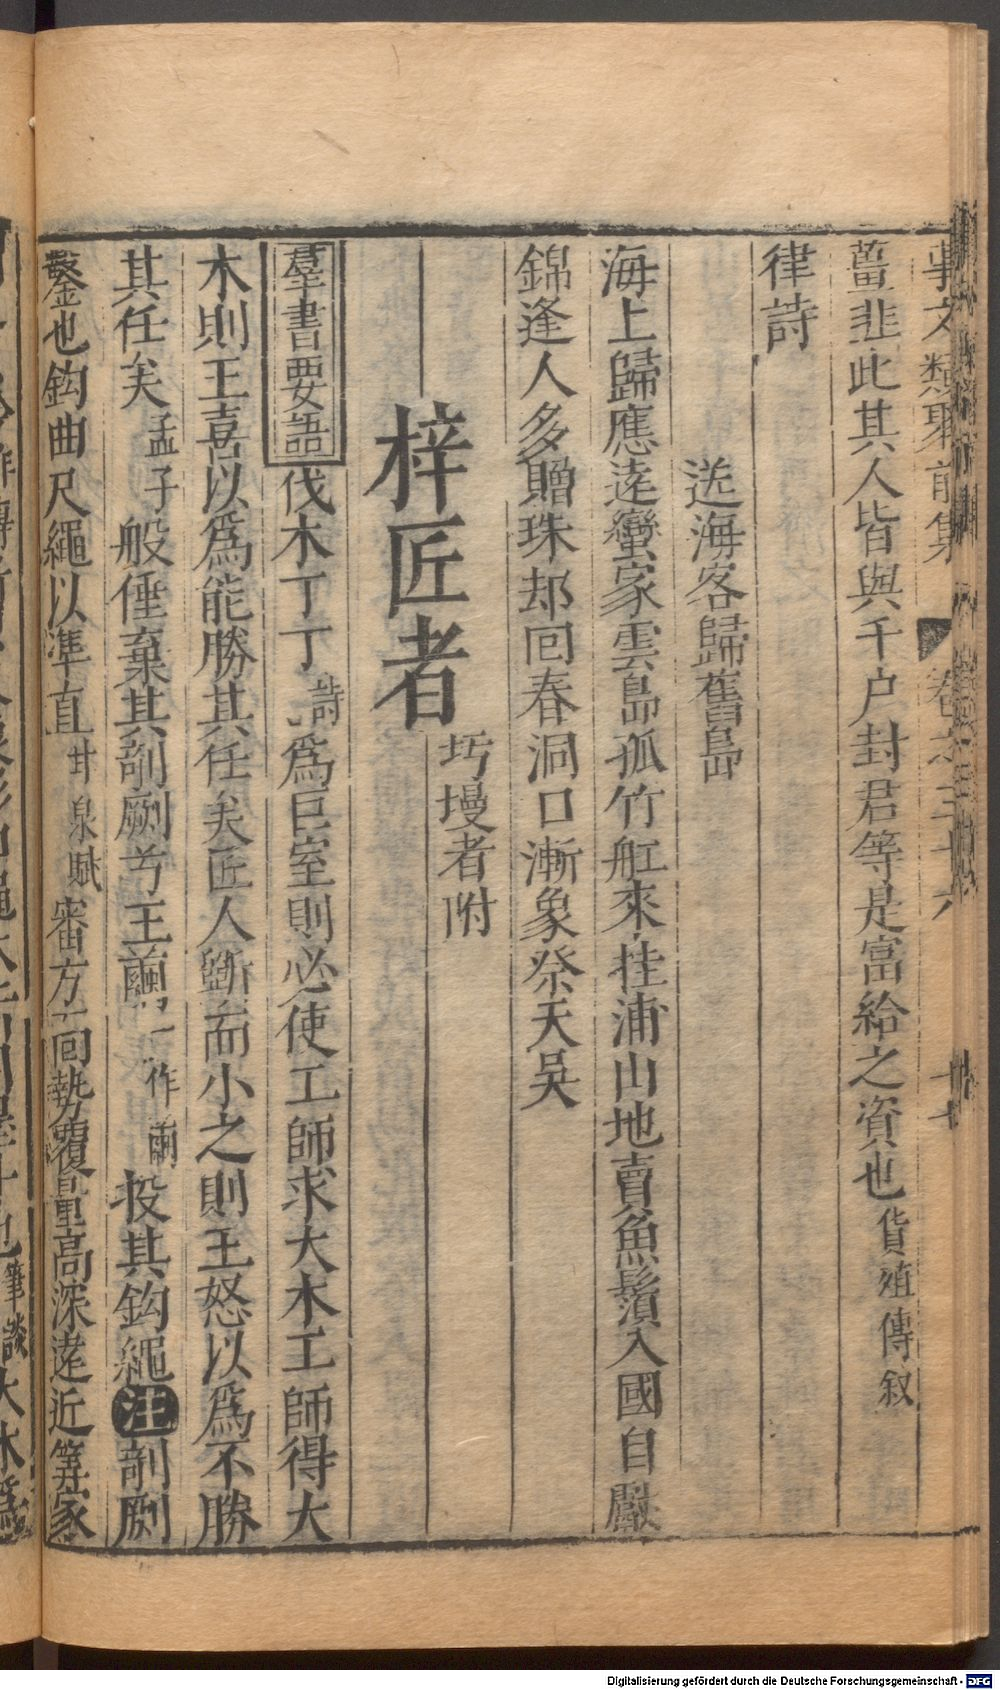 事文類聚前集 卷之三十六 十七
薑韭此其人皆與千户封君等是富給之資也貨殖傳叙
律詩
送海客歸舊島
海上歸應遠蠻家雲島孤竹舡來桂浦山地賣魚鬚入國自獻
錦逢人多贈珠却回春洞口漸象祭天吳
梓匠者 圬墁者附
羣書要語 伐木丁丁詩 爲巨室則必使工師求大木工師得大
木則王喜以爲能勝其任矣匠人斵而小之則王怒以爲不勝
其任矣孟子般倕棄其剞劂兮王爾一作薾投其鈎繩注剞劂
鑿也鈎曲尺繩以準直甘泉賦審方面勢覆量高深遠近筭家
筆談 大木爲
Digitalisierung gefördert durch die Deutsche Forschungsgemeinschaft - DFG